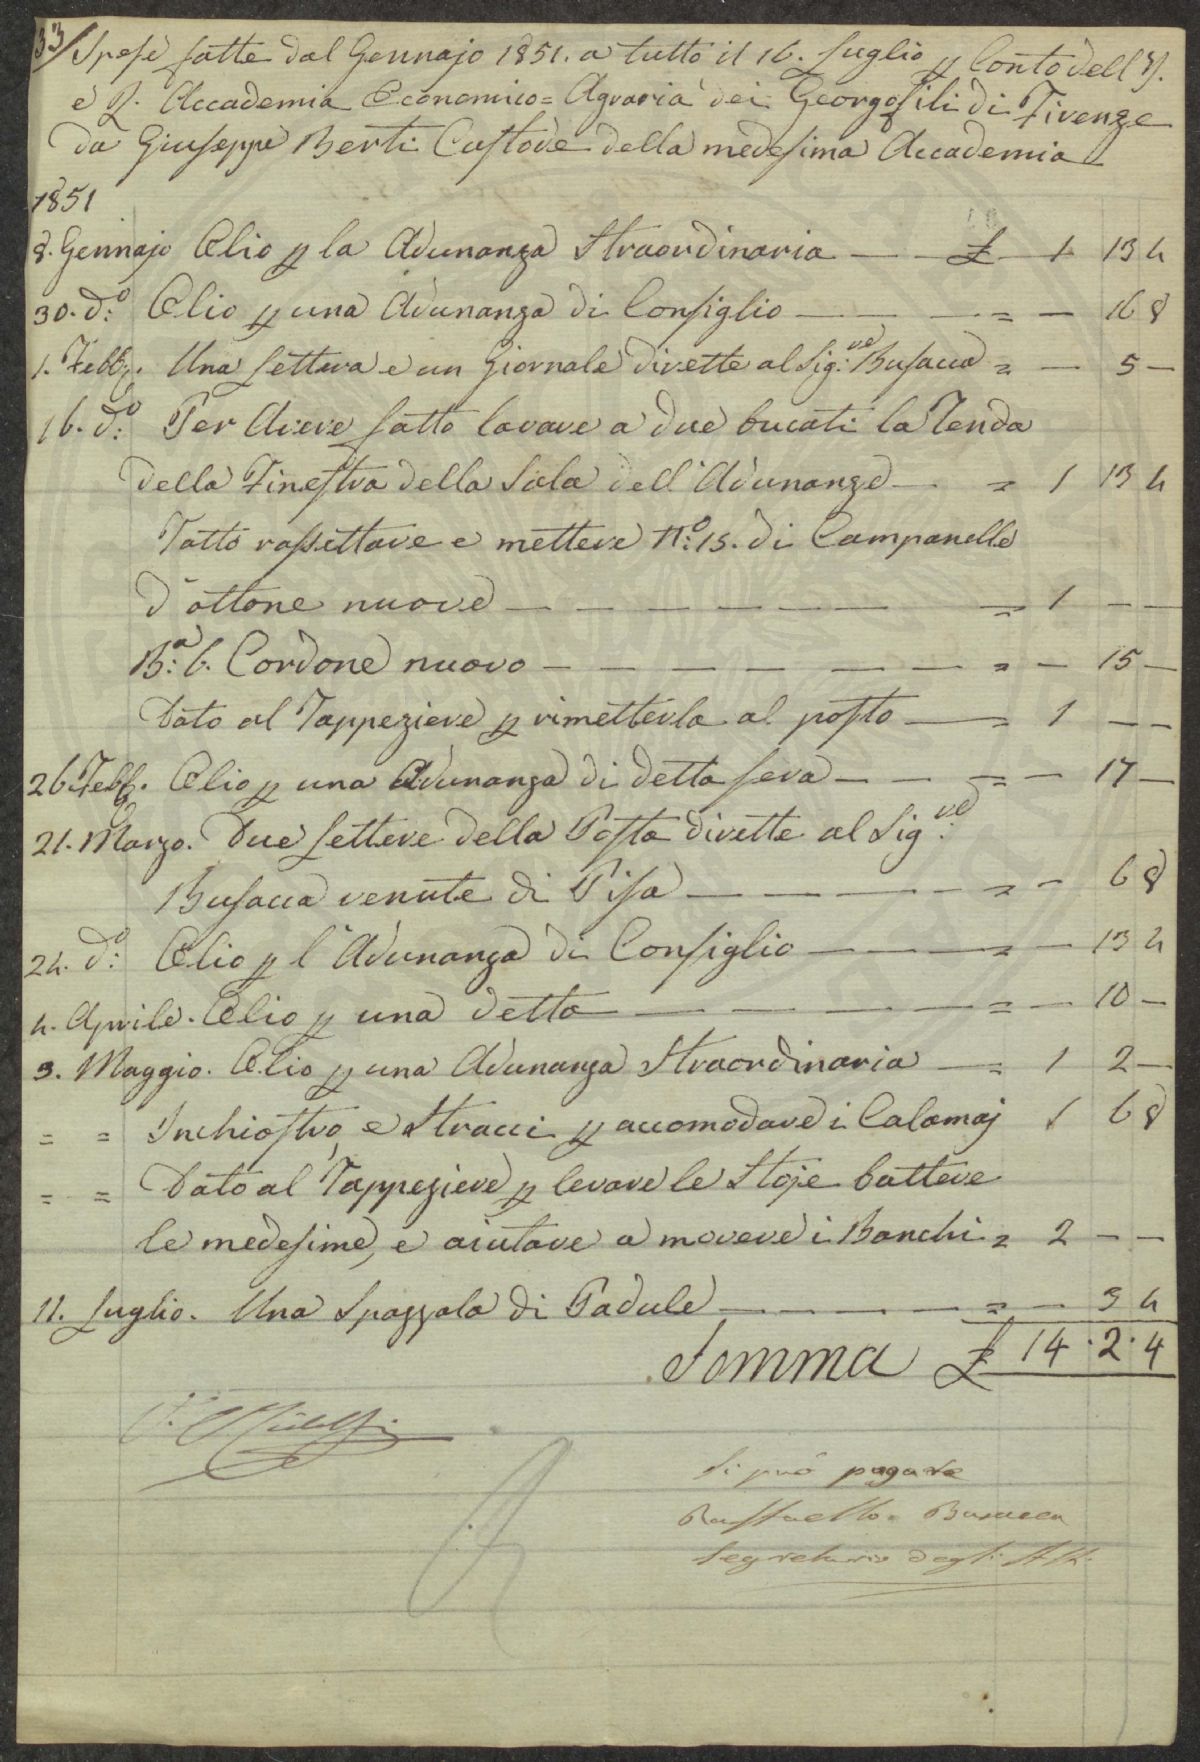 33/ Spese fatte dal Gennajo 1851. a tutto il 16. Luglio p Conto dell' I.
e R. Accademia Economico=Agraria dei Georgofili di Firenze
da Giuseppe Berti Custode della medesima Accademia
1851
8. Gennajo Olio p la Adunanza Straordinaria — — £ 1 13 4
30. do: Olio p una Adunanza di Consiglio — — — = — 16 8
1. Febb. Una Lettera e un Giornale dirette al Sig:re Busacca = — 5 —
16. do: Per Avere fatto lavare a due bucati la Tenda
della Finestra della Sala dell'Adunanze — = 1 13 4
Fatto rassettare e mettere No: 15. di Campanelle
d'ottone nuove — — — — — — = 1 — —
Ba: 6. Cordone nuovo — — — — — — = — 15 —
Dato al Tappeziere p rimetterla al posto — = 1 — —
26. Febb. Olio p una Adunanza di detta sera — — — = — 17 —
21. Marzo. Due Lettere della Posta dirette al Sig:re
Busacca venute di Pisa — — — — — = — 6 8
24. do: Olio p l'Adunanza di Consiglio — — — = — 13 4
4. Aprile. Olio p una detta — — — — — = — 10 —
3. Maggio. Olio p una Adunanza Straordinaria — = 1 2 —
= = Inchiostro, e Stracci p accomodare i Calamaj 1 6 8
= = Dato al Tappeziere p levare le Stoje battere
le medesime, e aiutare a movere i Banchi = 2 — —
11. Luglio. Una Spazzola di Padule — — — — = — 3 4
Somma £ 14 . 2 . 4
Si può pagare
Raffaello Busacca
Segretario degli Atti